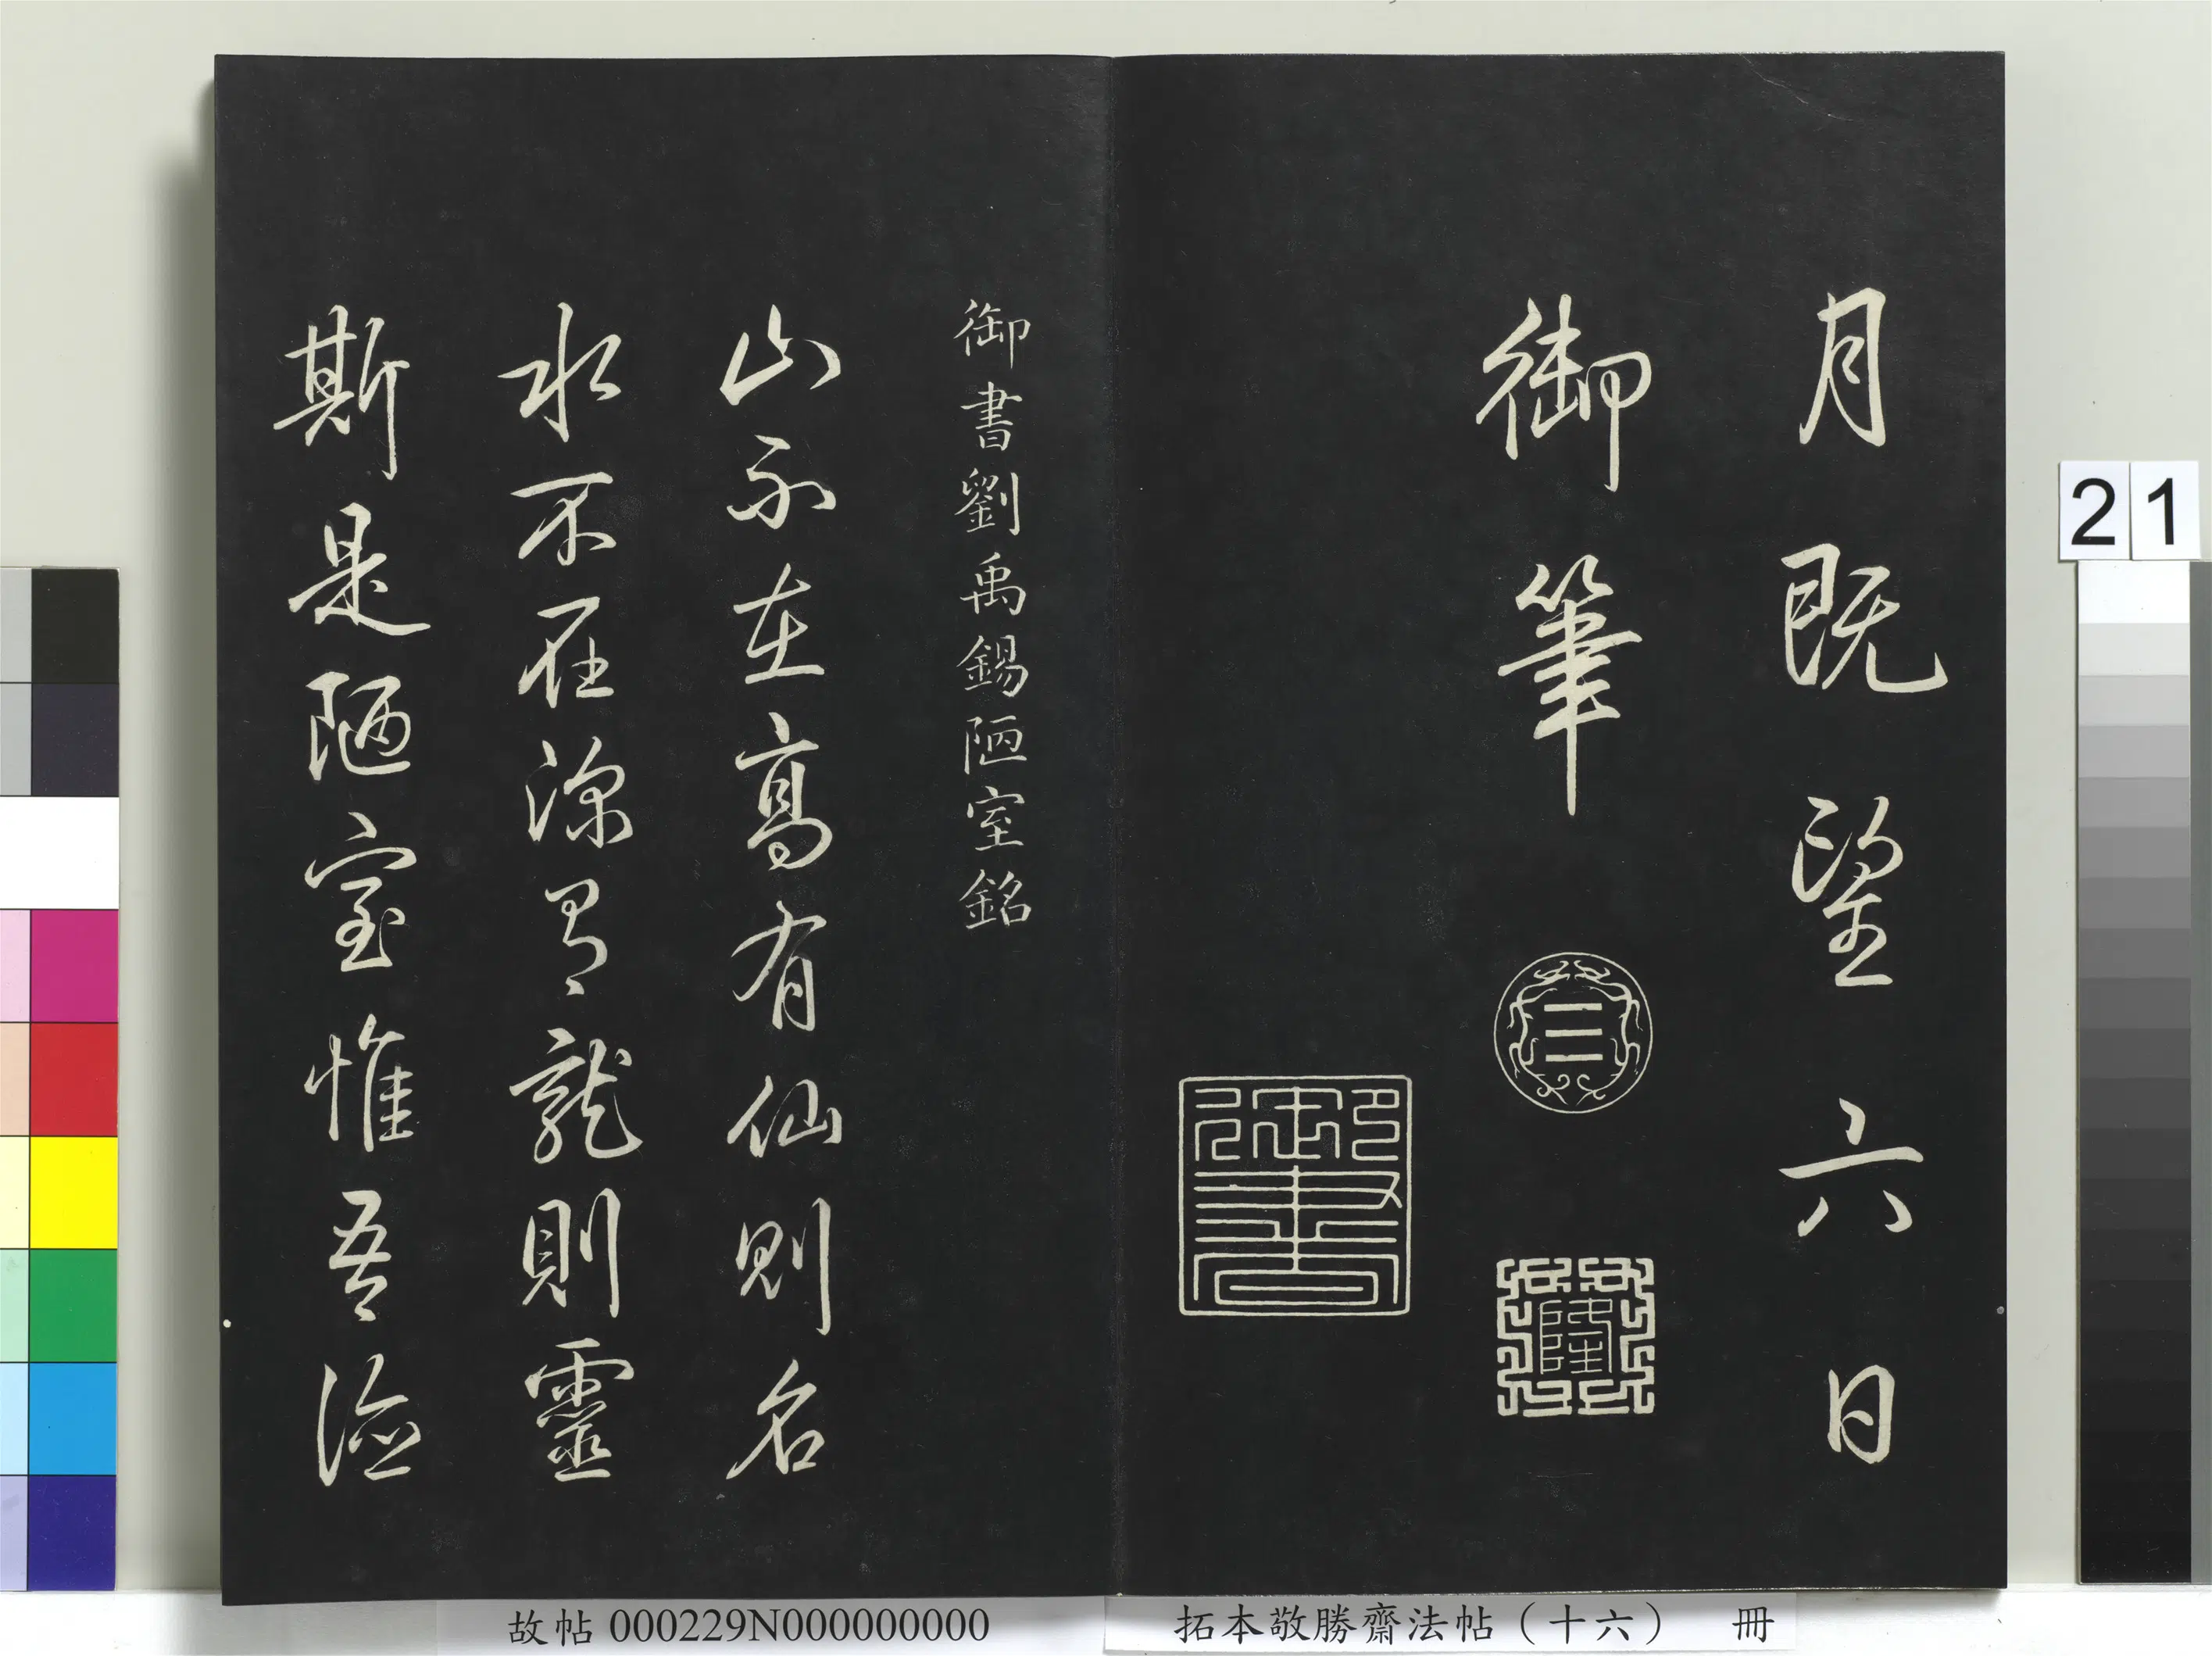 月既望六日
御筆
乾隆
御書
御書劉禹錫陋室銘
山不在高有仙則名
水不在深有龍則靈
斯是陋室惟吾德
21
故帖 000229N000000000
拓本敬勝齋法帖（十六） 冊